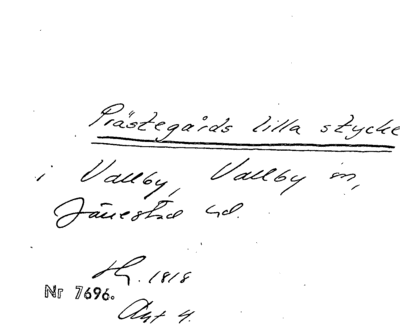 Prästegårds lilla stycke
i Vallby, Vallby sn,
Järrestad hd.
Hg. 1818
Nr 7696.
Akt 4.